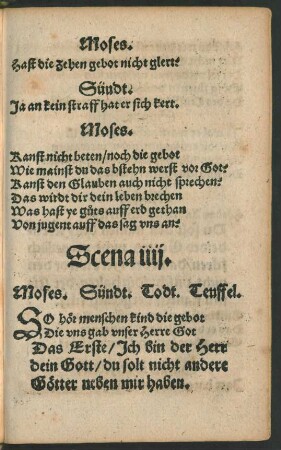 Moses.
Hast die zehen gebot nicht glert?
Sündt.
Ja an kein straff hat er sich kert.
Moses.
Kanst nicht beten/noch die gebot
Wie mainst du das bstehn werst vor Got?
Kanst den Glauben auch nicht sprechen?
Das wirdt dir dein leben brechen
Was hast ye güts auff erd gethan
Von jugent auff das sag vns an?
Scena iiij.
Moses. Sündt. Todt. Teuffel.
SO hört menschen kind die gebot
Die vns gab vnser Herre Got
Das Erste/Ich bin der Herr
dein Gott/du solt nicht andere
Götter neben mir haben.